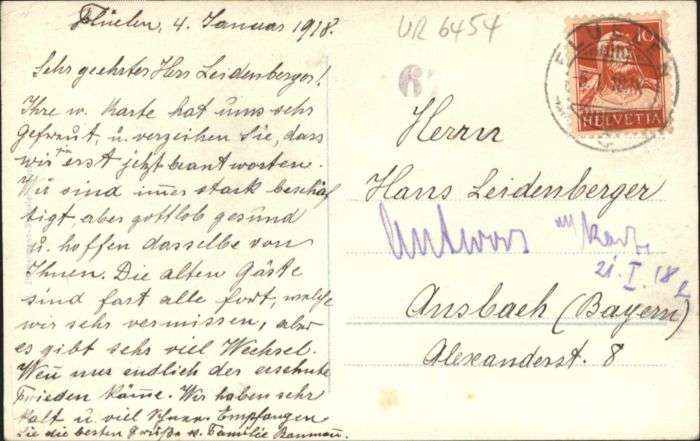 Flüelen, 4. Januar 1918.
Sehr geehrter Herr Leidenberger!
Ihre w. Karte hat uns sehr
gefreut, u. verzeihen Sie, dass
wir erst jetzt beantworten.
Wir sind immer stark beschäf
tigt aber gottlob gesund
u. hoffen dasselbe von
Ihnen. Die alten Gäste
sind fast alle fort, welche
wir sehr vermissen, aber
es gibt sehr viel Wechsel.
Wen nur endlich der ersehnte
Frieden käme. Wir haben sehr
kalt u. viel Schnee. Empfangen
Sie die besten Grüße v. Familie
UR 6454
FLUELEN
10
HELVETIA
Herrn
Hans Leidenberger
Antwort
21. I. 18
Ansbach (Bayern)
Alexanderst. 8